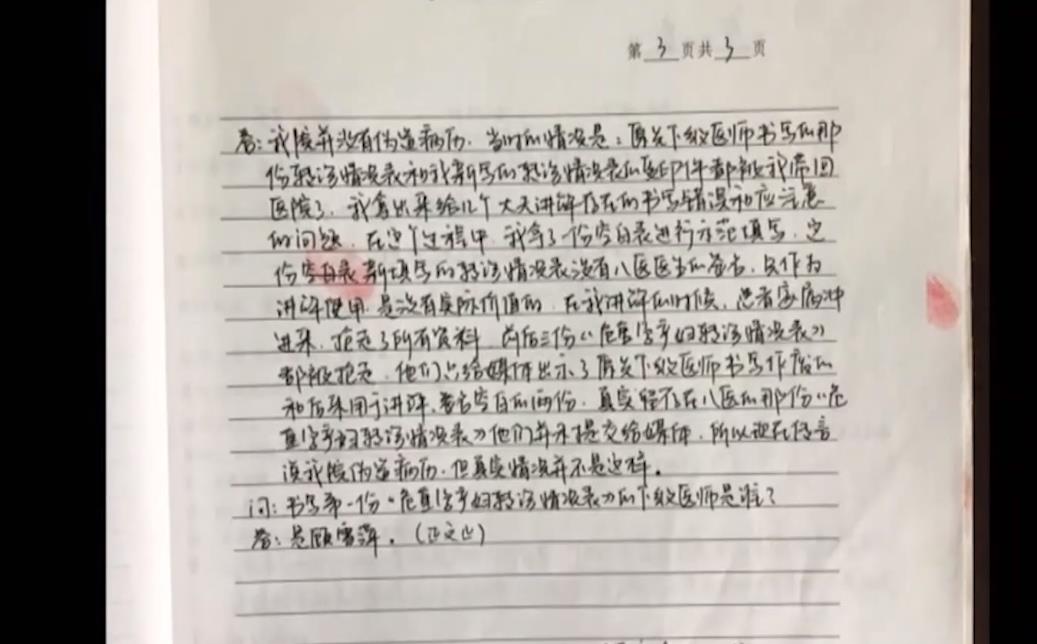 第 3 页共 3 页
答:我院并没有伪造病历。当时的情况是:原先下级医师书写的那
份转诊情况表和我新写的转诊情况表的复印件都被我带回
医院了,我拿出来给几个大夫讲解存在的书写错误和应注意
的问题,在这个过程中,我拿了份空白表进行示范填写,这
份空白表新填写的转诊情况表没有八医医生的签名,只作为
讲解使用,是没有实际价值的,在我讲解的时候,患者家属冲
进来,抢走了所有资料,前后三份《危重孕产妇转诊情况表》
都被抢走,他们只给媒体出示了原先下级医师书写作废的
和后来用于讲解,签名空白的两份,真实留存在八医的那份《危
重孕产妇转诊情况表》他们并未提交给媒体,所以现在传言
说我院伪造病历,但真实情况并不是这样。
问:书写第一份《危重孕产妇转诊情况表》的下级医师是谁?
答:是顾雪萍。(正文止)